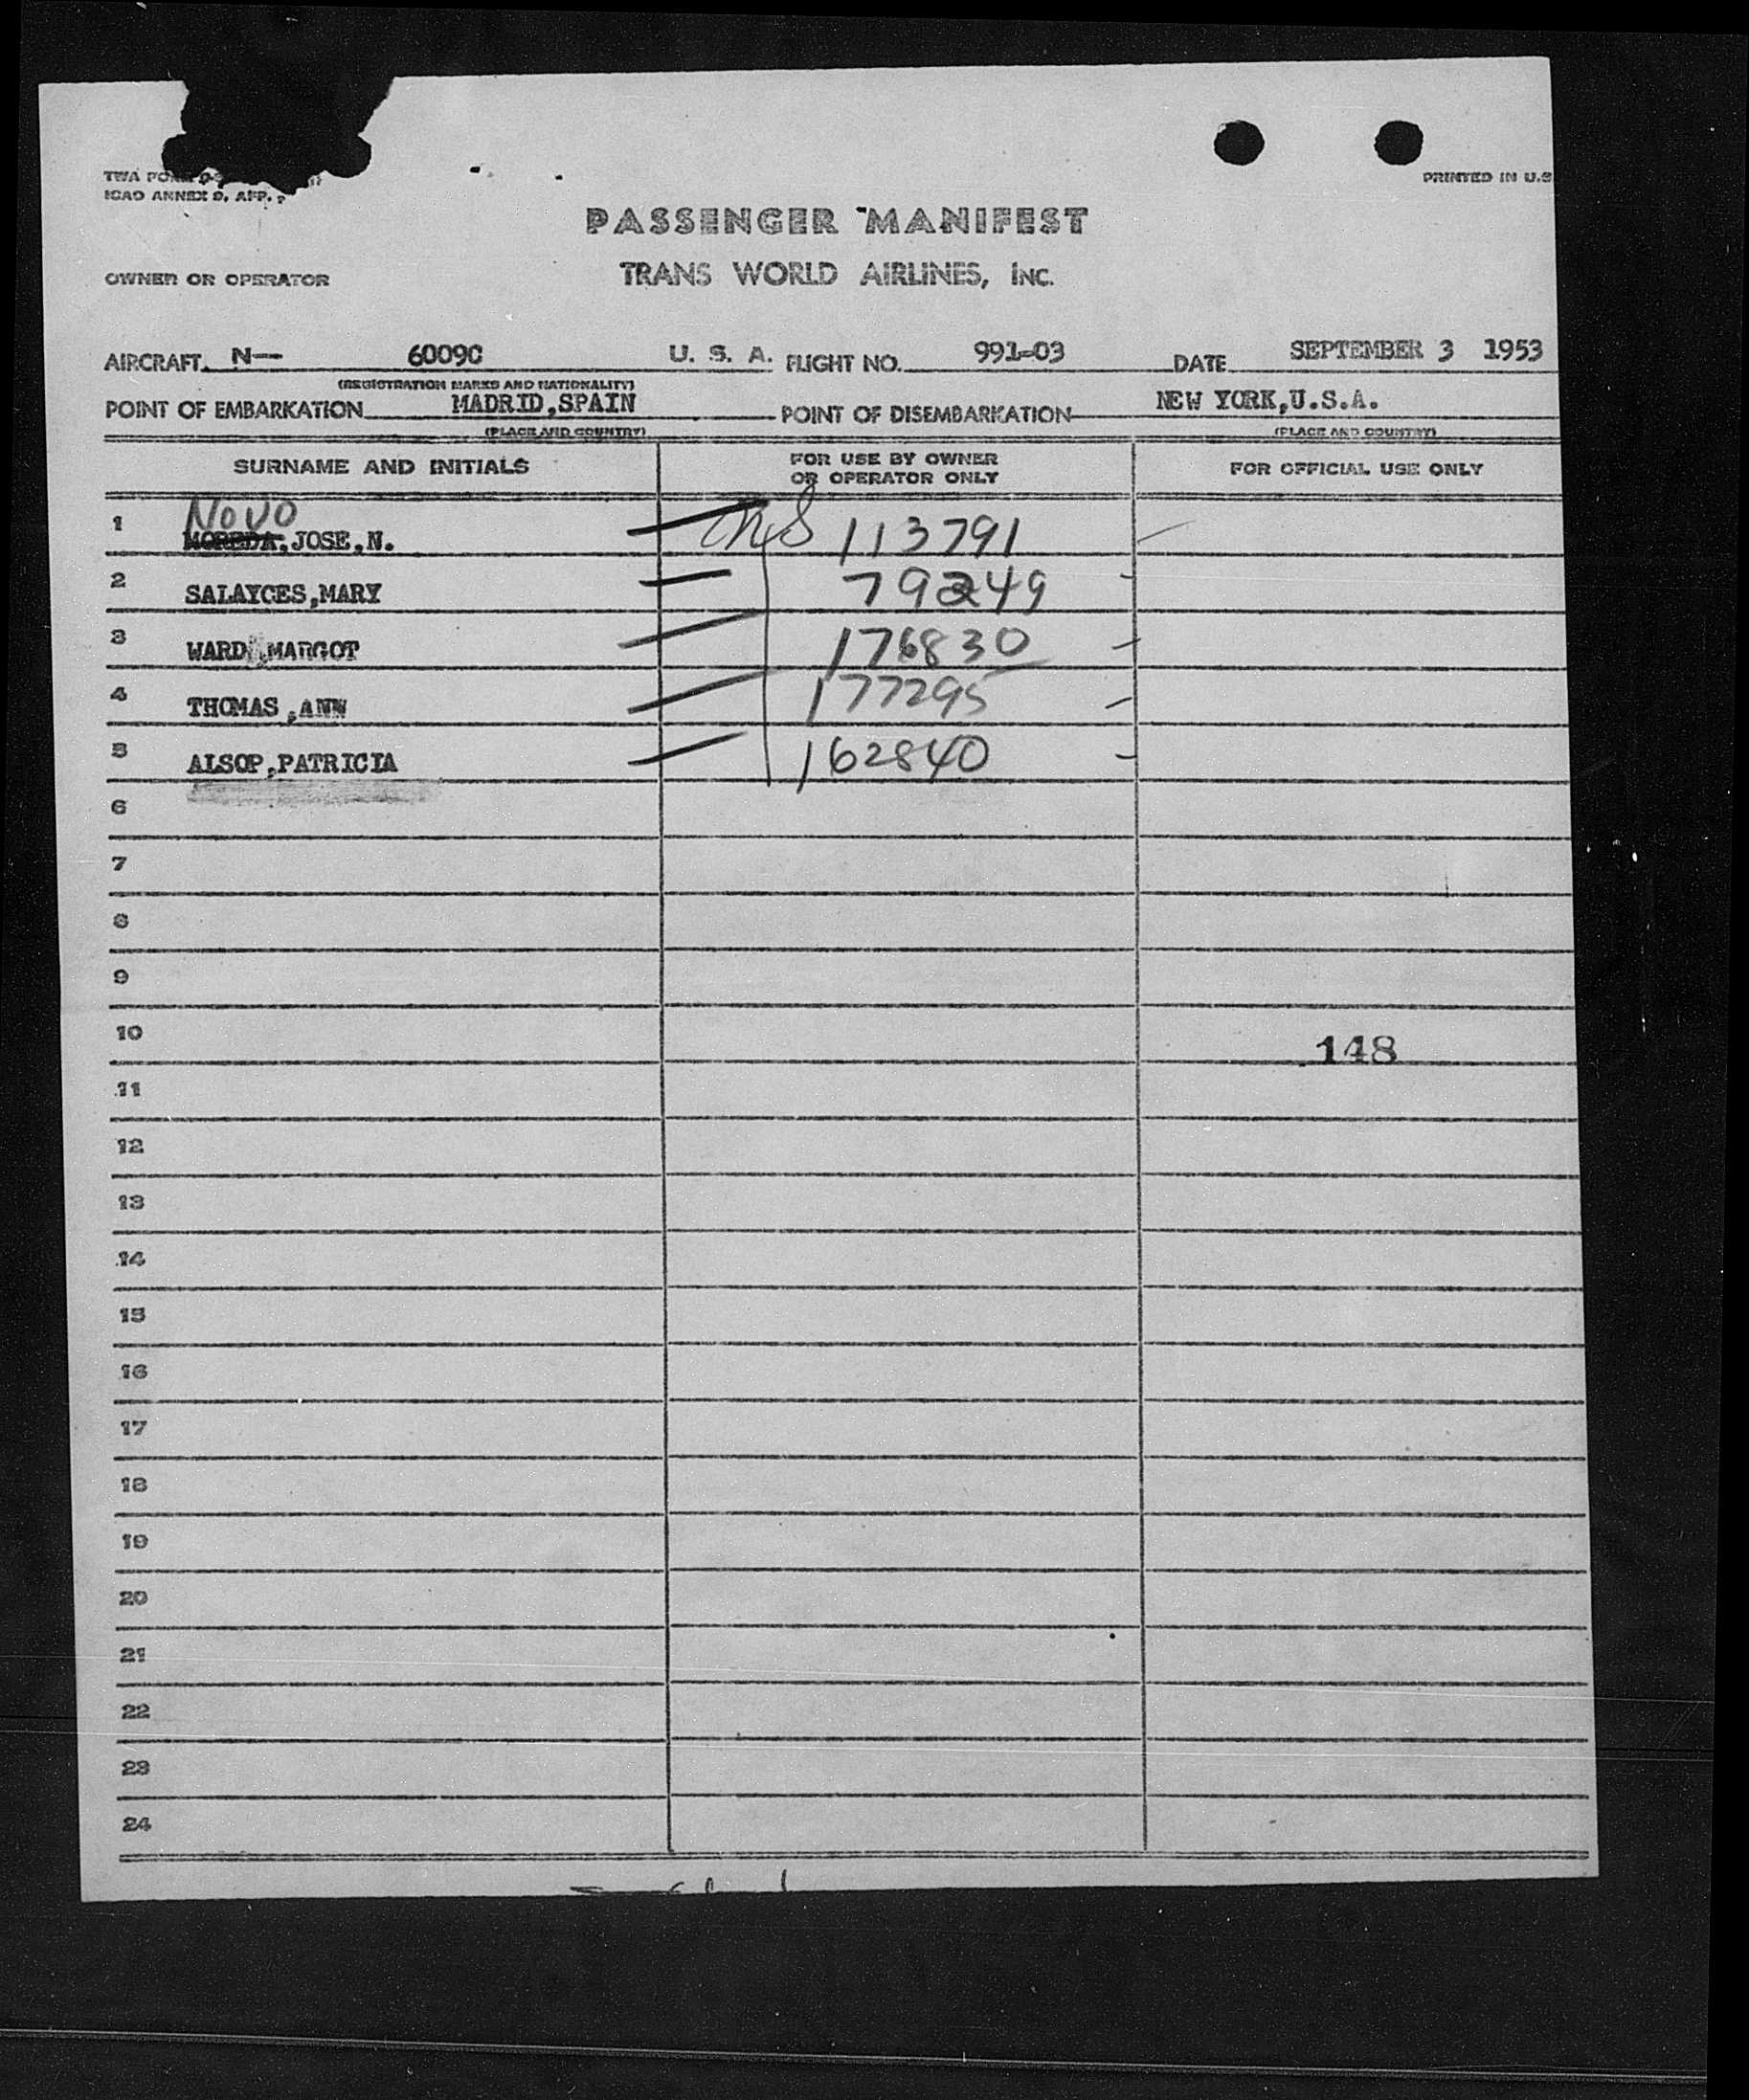 TWA FORM
ICAO ANNEX 9, APP.
PRINTED IN U.S
PASSENGER MANIFEST
OWNER OR OPERATOR TRANS WORLD AIRLINES, INC.
AIRCRAFT N— 6009C U. S. A. FLIGHT NO. 991-03 DATE SEPTEMBER 3 1953
(REGISTRATION MARKS AND NATIONALITY)
POINT OF EMBARKATION MADRID,SPAIN POINT OF DISEMBARKATION NEW YORK,U.S.A.
(PLACE AND COUNTRY) (PLACE AND COUNTRY)
SURNAME AND INITIALS FOR USE BY OWNER OR OPERATOR ONLY FOR OFFICIAL USE ONLY
NOVO
1 MOREDA,JOSE,N. 113791
2 SALAYCES,MARY 79249
3 WARD,MARGOT 176830
4 THOMAS,ANN 177295
5 ALSOP,PATRICIA 162840
6
7
8
9
10 148
11
12
13
14
15
16
17
18
19
20
21
22
23
24